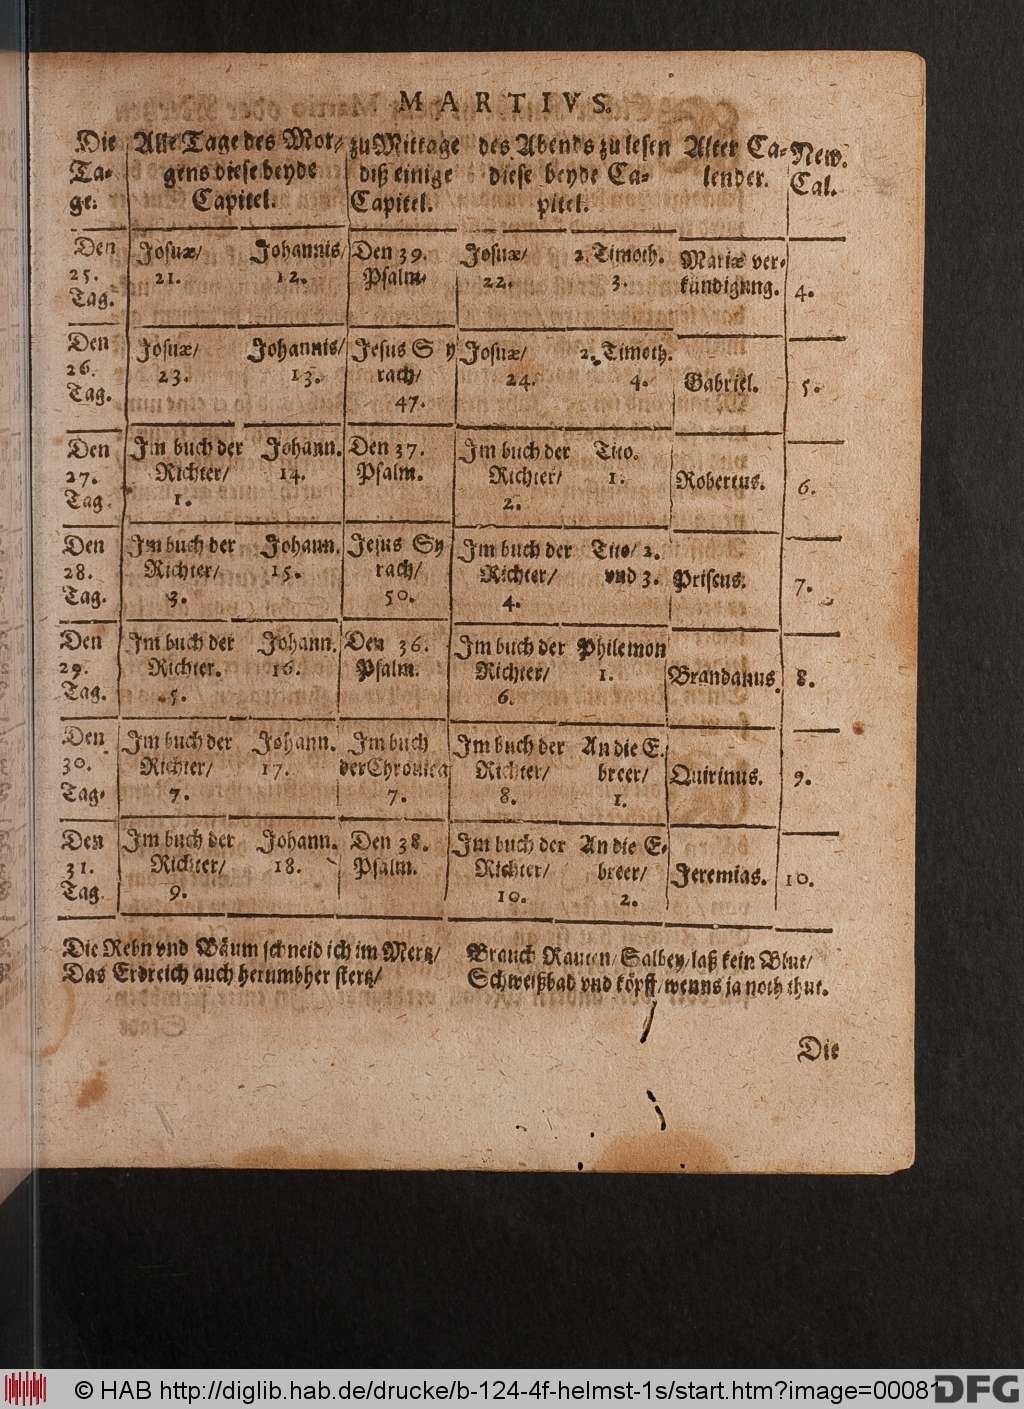 MARTIVS.
Die Ta-ge.
Alle Tage des Mor-
gens diese beyde
Capitel.
zu Mittage
diß einige
Capitel.
des Abends zu lesen
diese beyde Ca-
pitel.
Alter Ca-
lender.
New.
Cal.
Den
25.
Tag.
Josuæ/
21.
Johannis/
12.
Den 39.
Psalm.
Josuæ/
22.
2. Timoth.
3.
Mariæ ver-
kündigung.
4.
Den
26.
Tag.
Josuæ/
23.
Johannis/
13.
Jesus Sy
rach/
47.
Josuæ/
24.
2. Timoth.
4.
Gabriel.
5.
Den
27.
Tag.
Im buch der
Richter/
1.
Johann.
14.
Den 37.
Psalm.
Im buch der
Richter/
2.
Tito.
1.
Robertus.
6.
Den
28.
Tag.
Im buch der
Richter/
3.
Johann.
15.
Jesus Sy
rach/
50.
Im buch der
Richter/
4.
Tito/ 2.
vnd 3.
Priscus.
7.
Den
29.
Tag.
Im buch der
Richter.
5.
Johann.
16.
Den 36.
Psalm.
Im buch der
Richter/
6.
Philemon
1.
Brandanus.
8.
Den
30.
Tag.
Im buch der
Richter/
7.
Johann.
17.
Im buch
der Chronica
7.
Im buch der
Richter/
8.
An die E.
breer/
1.
Quirinus.
9.
Den
31.
Tag.
Im buch der
Richter/
9.
Johann.
18.
Den 38.
Psalm.
Im buch der
Richter/
10.
An die E-
breer/
2.
Jeremias.
10.
Die Rebn vnd Bäum schneid ich im Mertz/
Das Erdreich auch herumbher stertz/
Brauch Rauten/ Salbey/ laß kein Blut/
Schweißbad vnd köpff/ wenns ja noth thut.
Die
© HAB http://diglib.hab.de/drucke/b-124-4f-helmst-1s/start.htm?image=00081
DFG